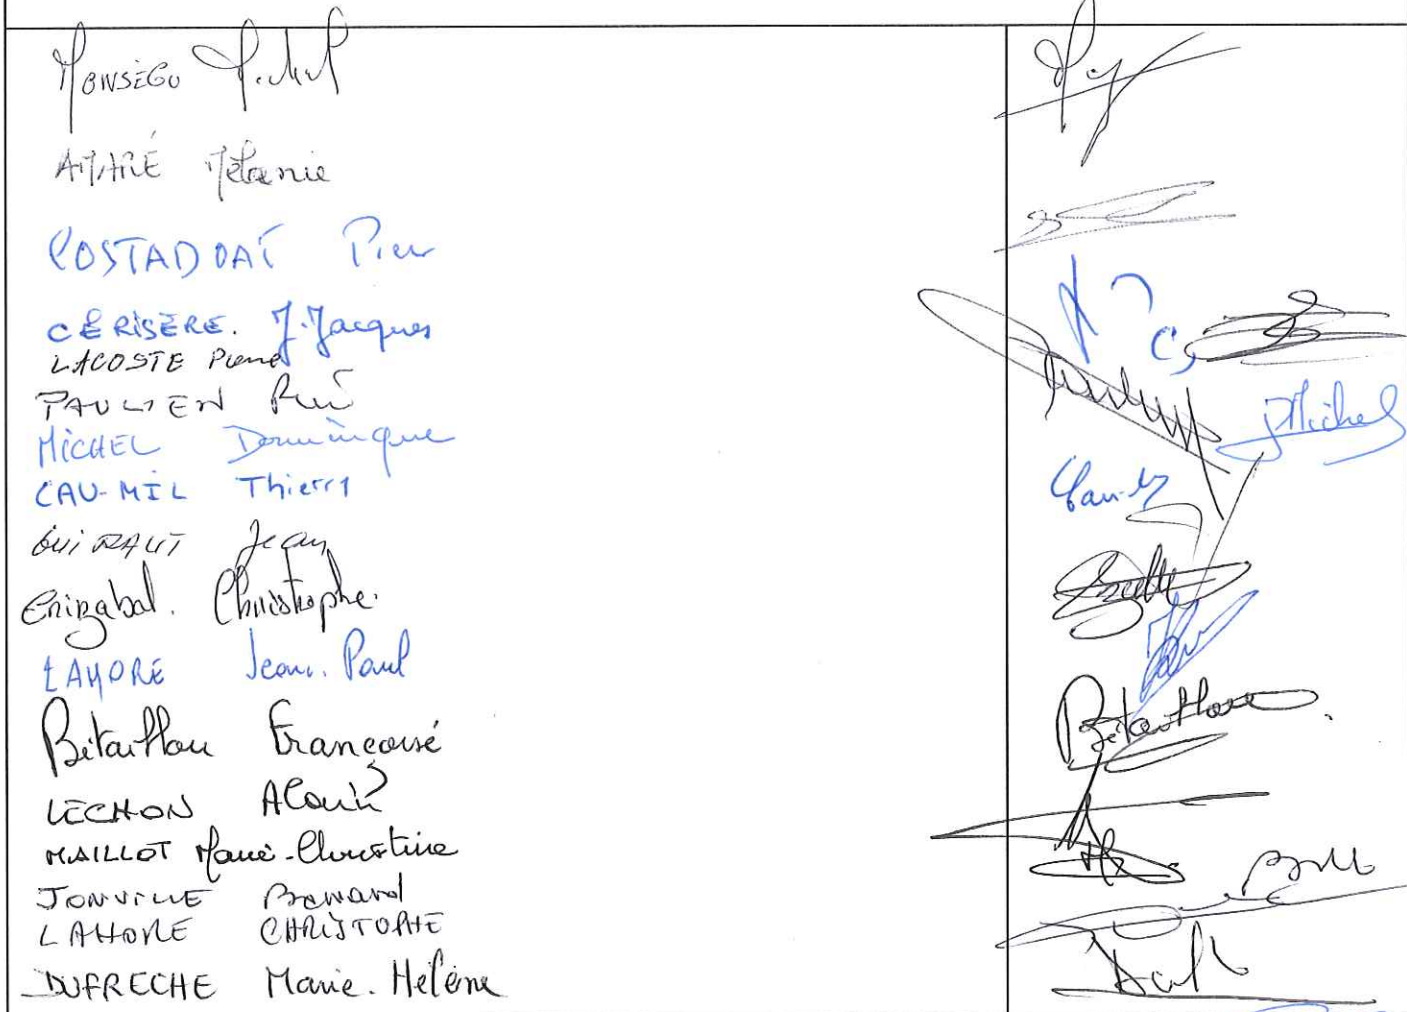 MONSÉGU Michel
AMARÉ Mélanie
COSTADOAT Pierre
CERISÈRE. J. Jacques
LACOSTE Pierre
PAULIEN René
MICHEL Dominique
CAU-MIL Thierry
GUIRAUT Jean
Erizabal. Christophe.
LAHORE Jean. Paul
Bétaillou Françoise
LECHON Alain
MAILLOT Marie-Christine
JONVILLE Bernard
LAHORE CHRISTOPHE
DUFRECHE Marie. Hélène
JMichel
Bétaillou